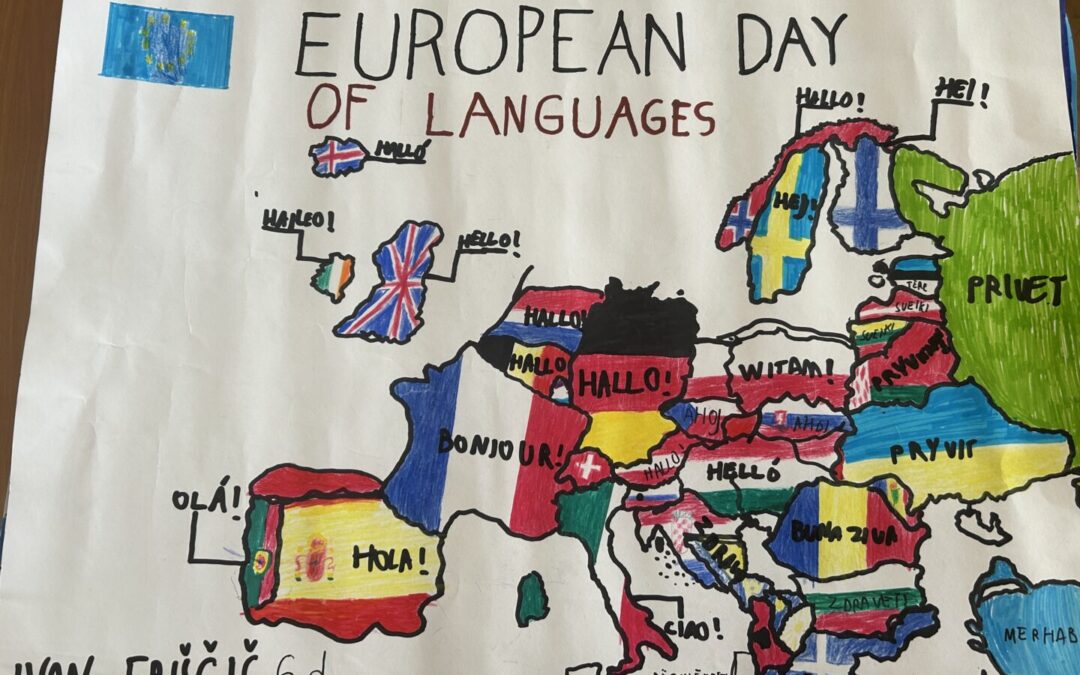 EUROPEAN DAY
OF LANGUAGES
HALLO!
HEI!
HALLÓ
HEJ!
HELLO!
PRIVET
TERE
SVEIKI
SVEIKI
HALLO!
HALLO
HALLO!
WITAM!
AHOJ
AHOJ
PRYVIT
BONJOUR!
HALLO!
HELLÓ
OLÁ!
HOLA!
BUNA ZIUA
ZDRAVETI
CIAO!
MERHAB
IVAN
6.d